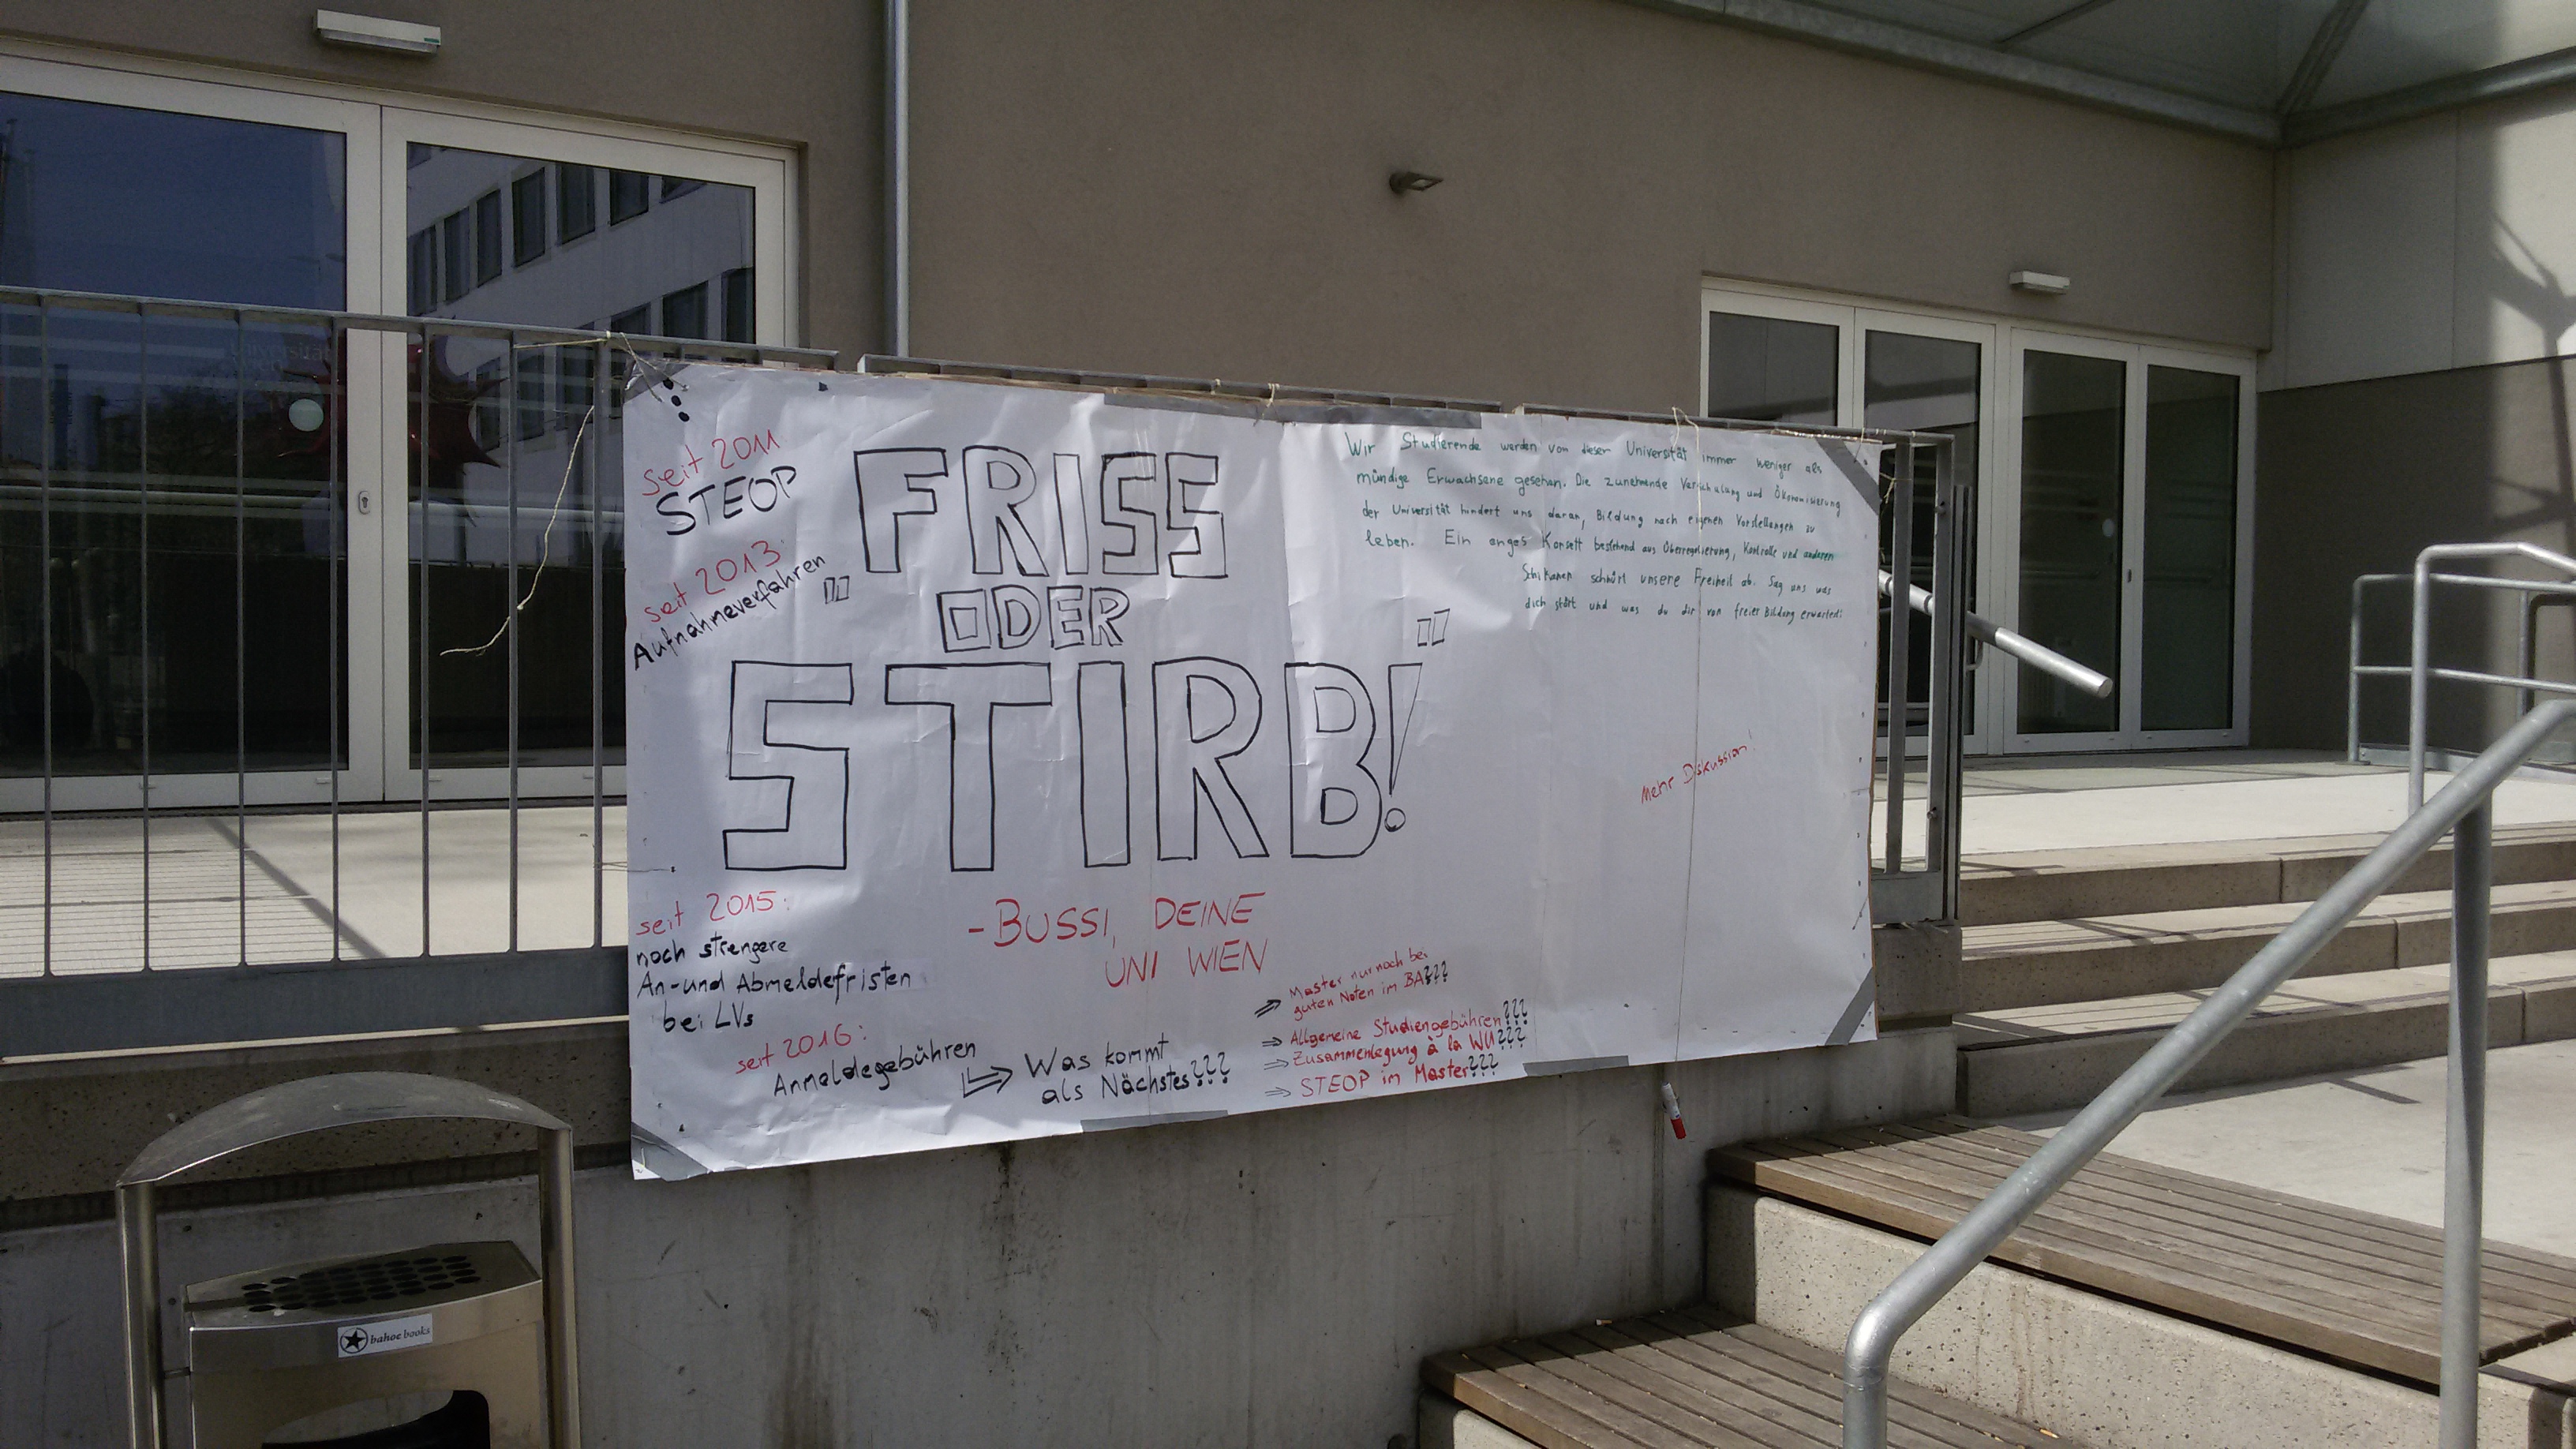 seit 2011
STEOP
seit 2013:
Aufnahmeverfahren
" FRISS
ODER
STIRB! "
- BUSSI, DEINE
UNI WIEN
Wir Studierende werden von dieser Universität immer weniger als
mündige Erwachsene gesehen. Die zunehmende Verschulung und Ökonomisierung
der Universität hindert uns daran, Bildung nach eigenen Vorstellungen zu
leben. Ein enges Korsett bestehend aus Überregulierung, Kontrolle und anderen
Schikanen schnürt unsere Freiheit ab. Sag uns was
dich stört und was du dir von freier Bildung erwartest!
Mehr Diskussion!
seit 2015:
noch strengere
An- und Abmeldefristen
bei LVs
seit 2016:
Anmeldegebühren
⇒ Was kommt
als Nächstes???
⇒ Master nur noch bei
guten Noten im BA???
⇒ Allgemeine Studiengebühren???
⇒ Zusammenlegung à la WU???
⇒ STEOP im Master???
bahoe books